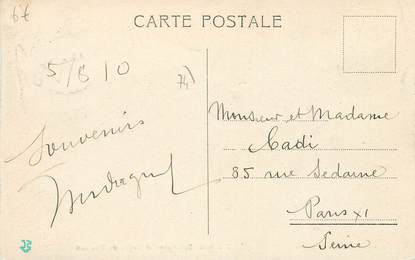 6€
CARTE POSTALE
5/8/0
74)
Souvenirs
Monsieur et Madame
Cadi
85 rue Sedaine
Paris XI
Seine